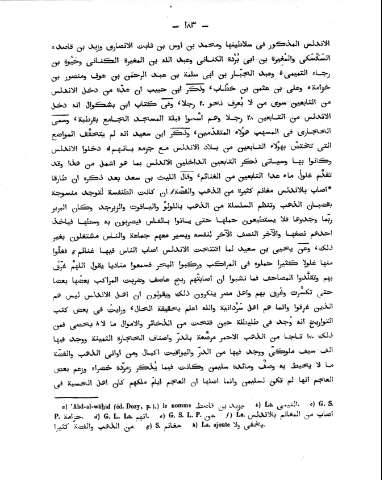 — ١٨٣ —
الاندلس المذكور فى سلاطينها ومحمد بن اوس بن ثابت الانصارى وزيد بن قاصد
السَّكْسَكى والمُغيرة بن ابى بُرْدة الكنانى وعبد الله بن المغيرة الكنانى وحَيْوة بن
رجاء التميمىّ وعبد الجَبَّار بن ابى سلمة بن عبد الرحمٰن بن عوف ومنصور بن
خزامة وعلى بن عثمن بن خطّاب، وذكر ابن حبيب ان هذا من دخل الاندلس
من التابعين سوى من لا يُعرف نحو ٢٠ رجلا، وفى كتاب ابن بشكوال انه دخل
الاندلس من التابعين ٢٨ رجلا وهم أسسوا قبلة المسجد الجامع بقرطبة، وسمى
الحجارى فى المسهب هؤلاء المتقدّمين، وذكر ابن سعيد انه لم يتحقّف المواضع
التى تختصّ بهؤلاء التابعين من بلاد الاندلس مع جزمه بانهم دخلوا الاندلس
وكانوا بها وسيأتى ذكر التابعين الداخلين الاندلس بما هو اشمل من هذا وقد
تقدّم غلول ما عدا التابعين من الغنائم، وقال الليث بن سعد بعد ذكره ان طارقا
اصاب بالاندلس مغانم كثيرة من الذهب والفضّة ان كانت الطنفسة لتوجد منسوجة
بقضبان الذهب وتنظم السلسلة من الذهب باللؤلؤ والياقوت والزبرجد وكان البربر
ربما وجدوها فلا يستطيعون حملها حتى يأتوا بالفأس فيضربون به وسطها فيأخذ
احدهم نصفها والآخر النصف الآخر لنفسه ويسير معهم جماعة والناس مشتغلون بغير
ذلك، وعن يحيى بن سعيد لما افتتحت الاندلس اصاب الناس فيها غنائم فغلّوا
منها غلولا كثيرا حملوه فى المراكب وركبوا البحر فسمعوا مناديا يقول اللهمّ غرّق
بهم وتقلّدوا المصاحف فما نشبوا ان اصابتهم ريح عاصف وضربت المراكب بعضها بعضا
حتى تكسّرت وغرق بهم واهل مصر ينكرون ذلك ويقولون ان اهل الاندلس ليس هم
الذين غرقوا وانما هم اهل سَرْدانية والله اعلم بحقيقة الحال، ورأيت فى بعض كتب
التواريخ انه وُجد فى طليطلة حين فتحت من الذخائر والاموال ما لا يحصى فمن
ذلك ١٧٠ تاجا من الذهب الاحمر مرصّعة بالدر واصناف الحجارة الثمينة ووجد فيها
الف سيف ملوكىّ ووجد فيها من الدرّ والياقوت اكيال ومن اوانى الذهب والفضّة
ما لا يحيط به وصف ومائدة سليمن وكانت فيما يُذكر زمرّدة خضراء وزعم بعض
العاجم انها لم تكن لسليمن وانما اصلها ان العاجم ايام ملكهم كان اهل الحسبة فى
a) ʿAbd-al-wâhid (éd. Dozy, p. ١.) le nomme حويد بن قاصط. b) La. القيسى. c) G. S.
P. خزامة. d) G. L. La. انهم. e) G. S. L. P. من. f) La. اصاب من المغانم بالاندلس
من الذهب والفضة كثيرا. g) S. مغانم. h) La. ajoute يخفى ولا.